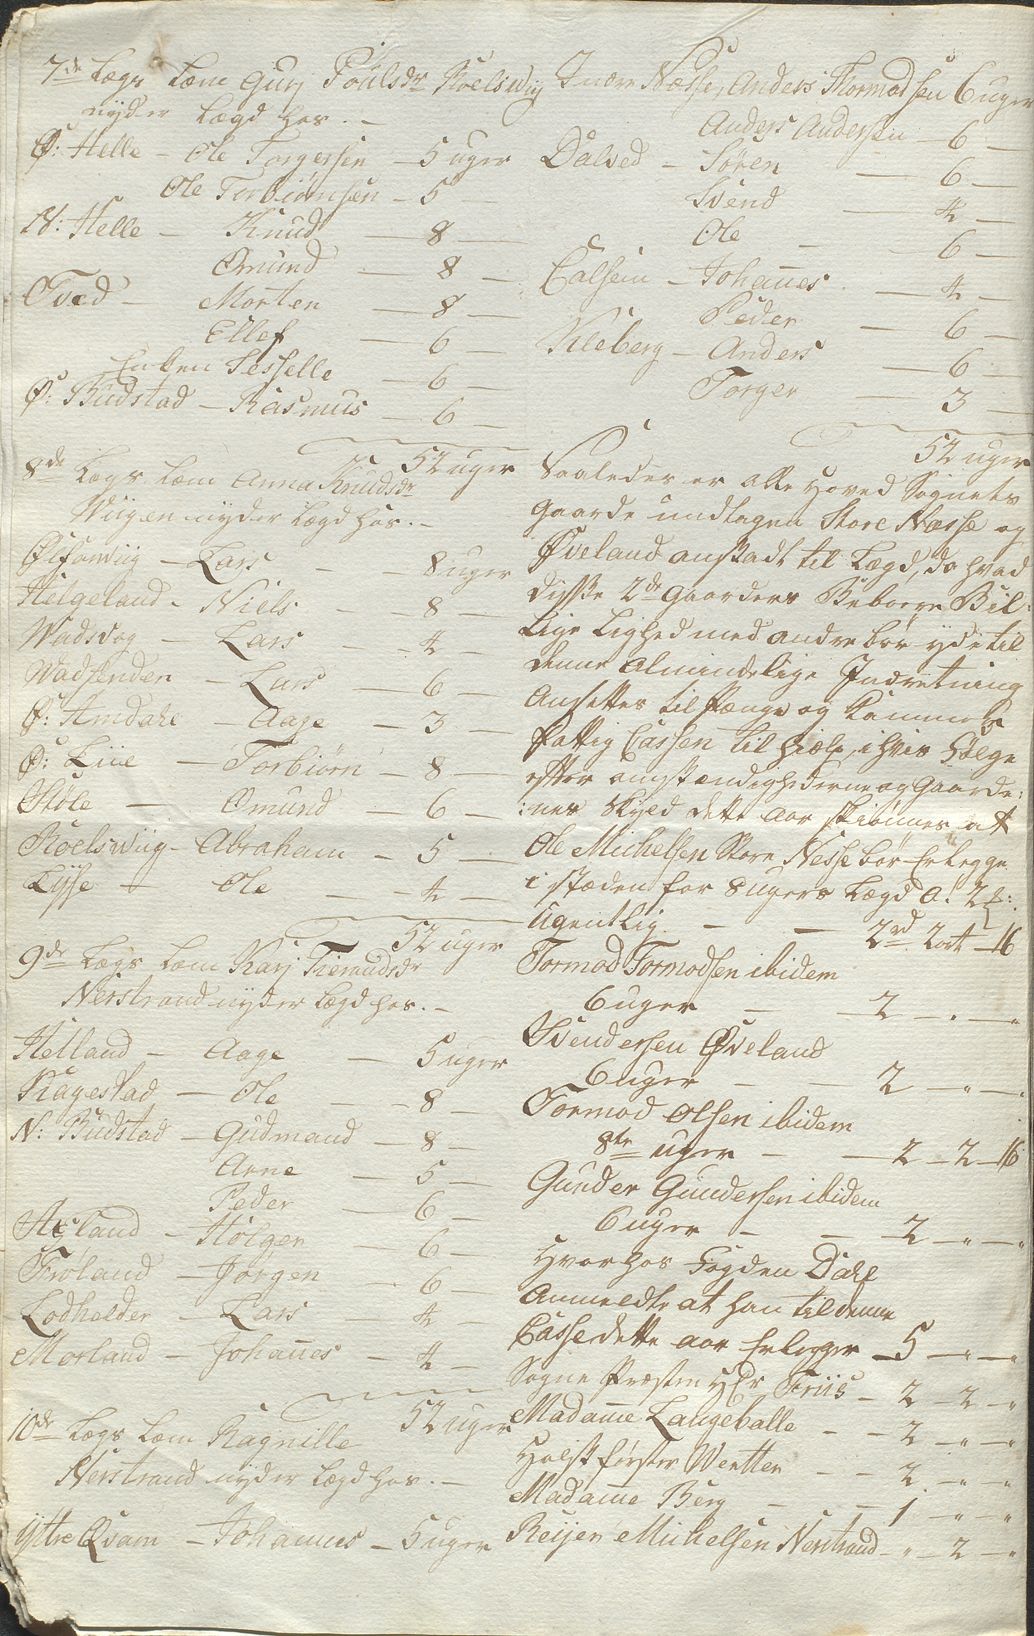 7de Lægs Lem Gurj Poulsdr Roelswiig
nyder Lægd hos. -
Ø: Helle - Ole Torgersen - 5 uger
Ole Torbiørnsen - 5 -
N: Helle - Knud - 8 -
Omund - 8 -
Tved - Morten - 8 -
Ellef - 6 -
Enken Sesselle - 6 -
Ø: Budstad - Rasmus - 6 -
52 uger
8de Lægs Lem Anna Knudsdr
Wiigen nyder Lægd hos. -
Lars - 8 uger
Helgeland - Niels - 8 -
Wadsvog - Lars - 4 -
Wadsenden - Lars - 6 -
Ø: Amdahl - Aage - 3 -
Ø: Liie - Torbiørn - 8 -
Støle - Omund - 6 -
Roelswiig - Abraham - 5 -
Lysse - Ole - 4 -
52 uger
9de Lægs Lem Karj
Nerstrand nyder Lægd hos. -
Helland - Aage - 5 uger
Ragestad - Ole - 8 -
N: Budstad - Gudmand - 8 -
Arne - 5 -
Peder - 6 -
Høyland - Holger - 6 -
Frøland - Jørgen - 6 -
Lodhalder - Lars - 4 -
Morland - Johannes - 4 -
52 uger
10de Lægs Lem Ragnille
Nerstrand nyder Lægd hos. -
Yttre Qvam - Johannes - 5 uger
Indre Næsse, Anders Thormodsen 6 uger
Anders Andersen - 6 -
Dalved - Søren - 6 -
Svend - 4 -
Ole - 6 -
Johannes - 4 -
Peder - 6 -
Kleberg - Anders - 6 -
Torger - 3 -
52 uger
Saaledes er alle Hoved Sognets
Gaarde undtagen Store Næsse og
Øveland ansadt til Lægd, da hvad
disse 2de Gaarders Beboere Bil:
lige Lighed med andre bør yde til
denne almindelige Indretning
Ansettes til Penge og kommer
Fattig Cassen til hielp, i hvis Følge
efter omstændighederne og Gaarde:
:nes Skyld dette Aar skiønnes at
Ole Michelsen Store Nesse bør Erlegge
i stæden for 8 ugers Lægd a! 2 ß:
Ugentlig - - 2 rd 2 ort 16
Tormod Tormodsen ibidem
6 uger - - 2 - . - „
Svendersen Øveland
6 uger - - 2 - „ - „
Tormod Olsen ibidem
8te uger - - 2 - 2 - 16
Gunder Gundersen ibidem
6 uger - - 2 - „ - „
Hvorhos Fogden Dahl
Anmeldte at han til denne
Casse dette aar Erlegger - 5 - „ - „
Sogne Præsten Hr Friis - 2 - 2 - „
Madame Langeballe - - 2 - „ - „
- - 2 - „ - „
Madame Berg - - 1 - „ - „
Reijer Michelsen Nerstrand - „ - 2 - „